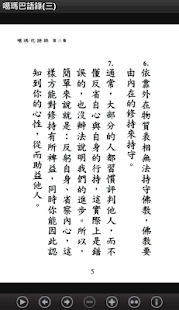 噶瑪巴語錄(三)
噶瑪巴語錄 第三集
6. 依靠外在物質表相無法持守佛教，佛教要
由內在的修持來持守。
7. 通常，大部分的人都習慣評判他人，而不
懂反省自心與自身的行持，這實際上是錯
誤的，也沒辦法說明我們的進步。所以，
簡單來說就是：反躬自身、省察內心，這
樣方能對修持有所裨益，同時你能因此認
知到你的心性，從而助益他人。
5